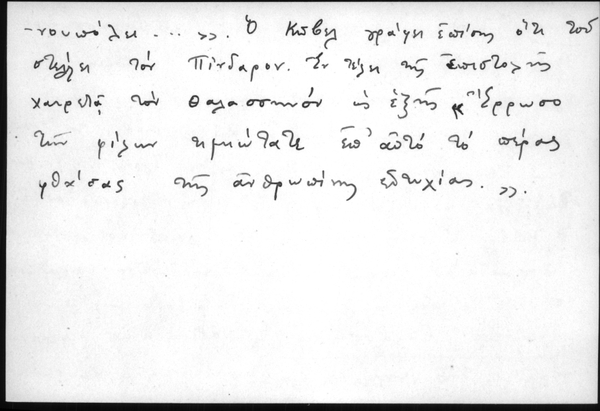 -νουπόλει ... ». Ὁ Κῶβελ γράφει ἐπίσης ὅτι τοῦ
στέλλει τὸν Πίνδαρον. Ἐν τέλει τῆς ἐπιστολῆς
χαιρετᾷ τὸν Θαλασσηνὸν ὡς ἑξῆς «Ἔρρωσο
τῶν φίλων τιμιώτατε ἐπ' αὐτὸ τὸ πέρας
φθάσας τῆς ἀνθρωπίνης εὐτυχίας. ».